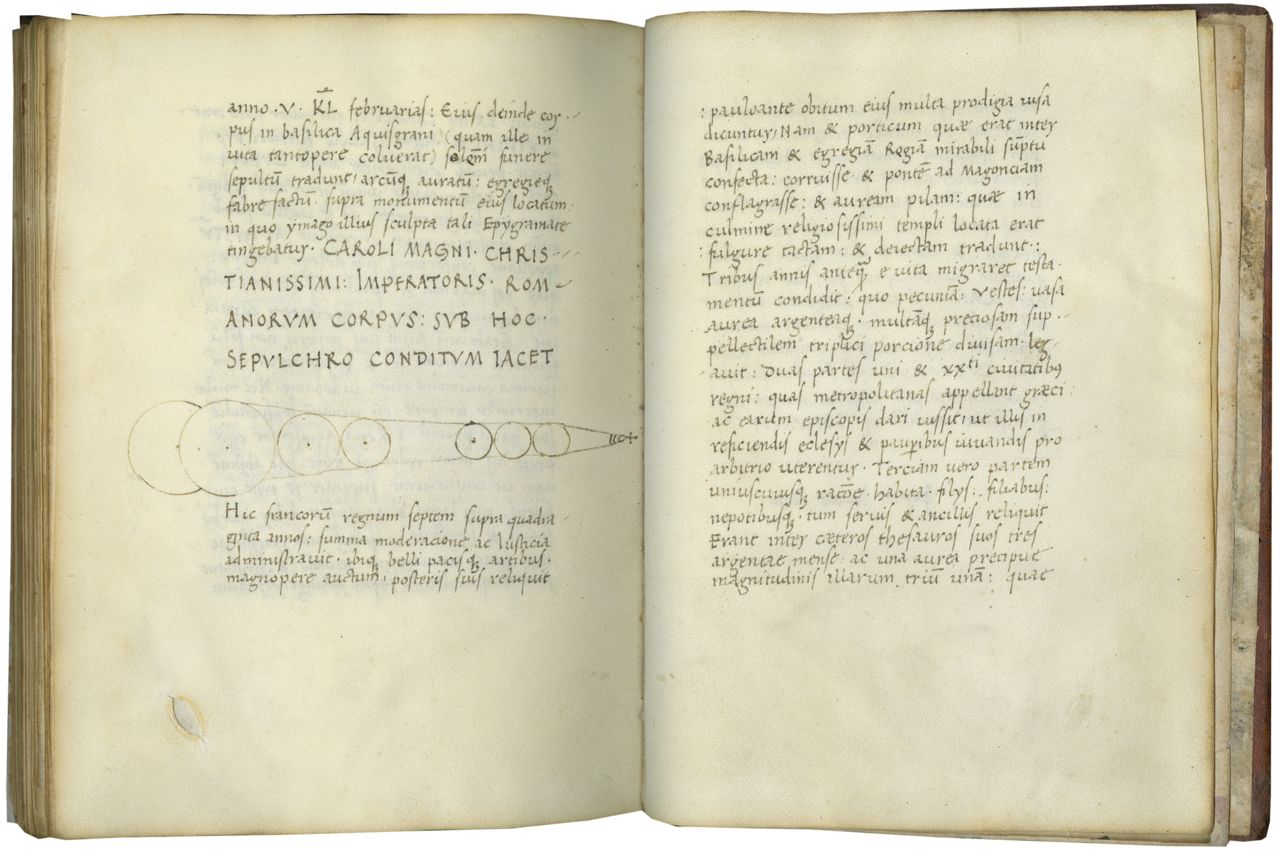 anno · V · K̄L februarias : Eius deinde cor-
pus in basilica Aquisgrani (quam ille in
vita tantopere coluerat) solōni funere
sepultū tradunt, arcūq auratū : egregieq
fabre factū supra monumentū eius locatum
in quo ymago illius sculpta tali Epygramate
tingebatur · CAROLI MAGNI · CHRIS
TIANISSIMI : IMPERATORIS · ROM-
ANORVM CORPVS : SVB HOC ·
SEPVLCHRO CONDITVM IACET
Hic francorū regnum septem supra quadra-
ginta annos : summa moderacione ac Iusticia
administravit · ibiq belli pacisq artibus ·
magnopere auctum · posteris suis reliquit
: pauloante obitum eius multa prodigia visa
dicuntur, Nam & porticum quae erat inter
Basilicam & egregiā Regiā mirabili sūptu
confecta : corruisse & pontē ad Magonciam
conflagrasse : & auream pilam : quae in
culmine religiosissimi templi locata erat
: fulgure tactam : & deiectam tradunt · :
Tribus annis anteq e vita migraret testa·
mentū condidit : quo pecuniā : vestes : vasa
aurea argenteaq · multāq preciosam sup·
pellectilem triplici porcione divisam · leg-
·avit : Duas partes uni & xxti civitatibq
regni : quas metropolitanas appellant græci :
·ac earum episcopis dari iussit, ut illis in
reficiendis eclesys & pauꝑibus iuvandis pro
arbitrio uterentur · Terciam vero partem
uniuscuiusq racōe habita · filys : filiabus :
nepotibusq · tum servis & ancillis reliquit
Erant inter cæteros thesauros suos tres
argenteae mense : ac una aurea precipue
magnitudinis illarum triū unā : quae